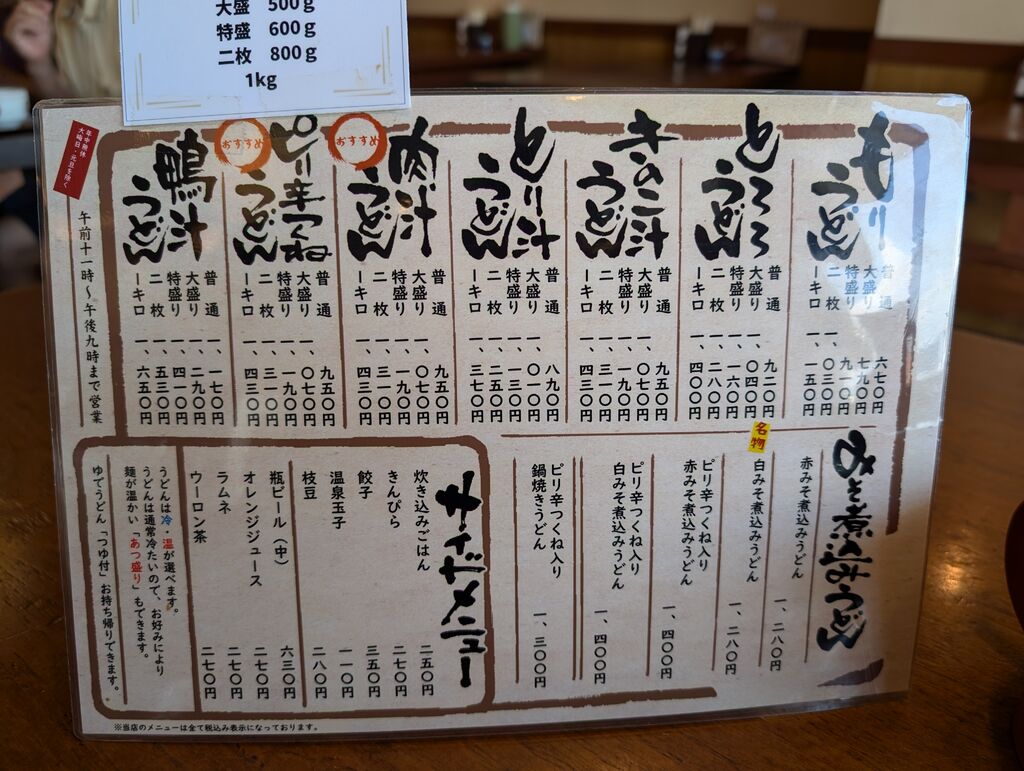 大盛 500g
特盛 600g
二枚 800g
1kg
もりうどん
普通 六七〇円
大盛り 七九〇円
特盛り 九一〇円
二枚 一、〇三〇円
一キロ 一、一五〇円
とろろうどん
普通 九二〇円
大盛り 一、〇四〇円
特盛り 一、一六〇円
二枚 一、二八〇円
一キロ 一、四〇〇円
きのこ汁うどん
普通 九五〇円
大盛り 一、〇七〇円
特盛り 一、一九〇円
二枚 一、三一〇円
一キロ 一、四三〇円
とり汁うどん
普通 八九〇円
大盛り 一、〇一〇円
特盛り 一、一三〇円
二枚 一、二五〇円
一キロ 一、三七〇円
おすすめ
肉汁うどん
普通 九五〇円
大盛り 一、〇七〇円
特盛り 一、一九〇円
二枚 一、三一〇円
一キロ 一、四三〇円
おすすめ
ピリ辛つくねうどん
普通 九五〇円
大盛り 一、〇七〇円
特盛り 一、一九〇円
二枚 一、三一〇円
一キロ 一、四三〇円
鴨汁うどん
普通 一、一七〇円
大盛り 一、二九〇円
特盛り 一、四一〇円
二枚 一、五三〇円
一キロ 一、六五〇円
年中無休
大晦日・元旦を除く
午前十一時〜午後九時まで営業
みそ煮込みうどん
赤みそ煮込みうどん 一、二八〇円
名物
白みそ煮込みうどん 一、二八〇円
ピリ辛つくね入り
赤みそ煮込みうどん 一、四〇〇円
ピリ辛つくね入り
白みそ煮込みうどん 一、四〇〇円
ピリ辛つくね入り
鍋焼きうどん 一、三〇〇円
サイドメニュー
炊き込みごはん 二五〇円
きんぴら 二七〇円
餃子 三五〇円
温泉玉子 一一〇円
枝豆 二八〇円
瓶ビール（中） 六三〇円
オレンジジュース 二七〇円
ラムネ 二七〇円
ウーロン茶 二七〇円
うどんは冷・温が選べます。
うどんは通常冷たいので、お好みにより
麺が温かい「あつ盛り」もできます。
ゆでうどん「つゆ付」お持ち帰りできます。
※当店のメニューは全て税込み表示になっております。